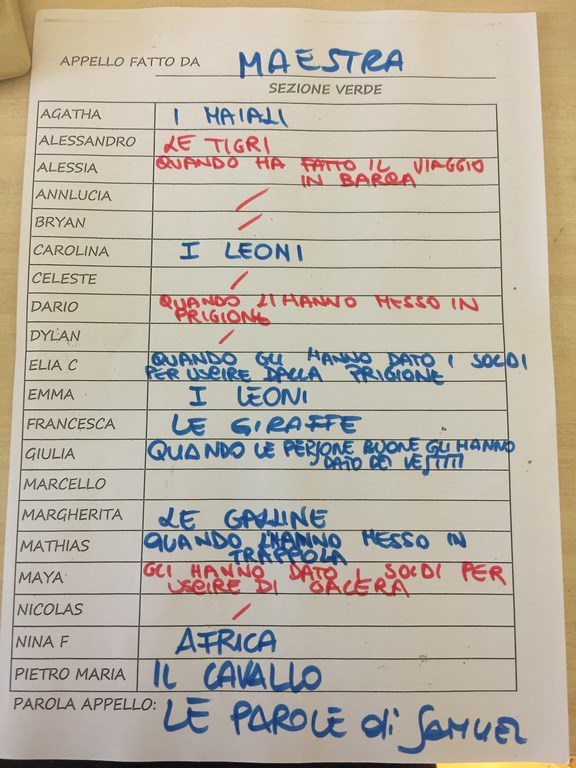 APPELLO FATTO DA MAESTRA
SEZIONE VERDE
AGATHA I MAIALI
ALESSANDRO LE TIGRI
ALESSIA QUANDO HA FATTO IL VIAGGIO
IN BARCA
ANNLUCIA /
BRYAN /
CAROLINA I LEONI
CELESTE /
DARIO QUANDO LI HANNO MESSO IN
PRIGIONE
DYLAN /
ELIA C QUANDO GLI HANNO DATO I SOLDI
PER USCIRE DALLA PRIGIONE
EMMA I LEONI
FRANCESCA LE GIRAFFE
GIULIA QUANDO LE PERSONE BUONE GLI HANNO
DATO DEI VESTITI
MARCELLO
MARGHERITA LE GALLINE
MATHIAS QUANDO L'HANNO MESSO IN
TRAPPOLA
MAYA GLI HANNO DATO I SOLDI PER
USCIRE DI GALERA
NICOLAS /
NINA F AFRICA
PIETRO MARIA IL CAVALLO
PAROLA APPELLO: LE PAROLE di SAMUEL